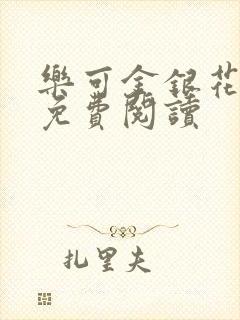 樂可金銀花
免費閱讀
扎里夫